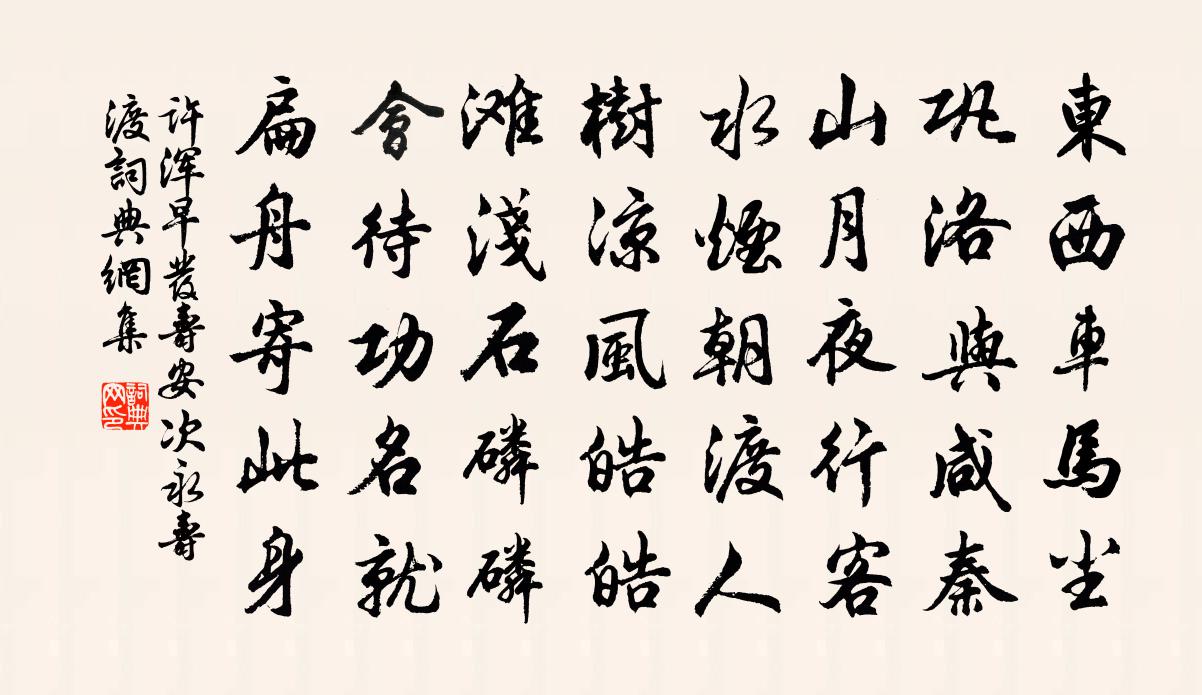 東西車馬尘
巩洛與咸秦
山月夜行客
水煙朝渡人
樹凉風皓皓
滩淺石磷磷
會待功名就
扁舟寄此身
许浑早發壽安次永壽
渡詞典網集
詞典
网印